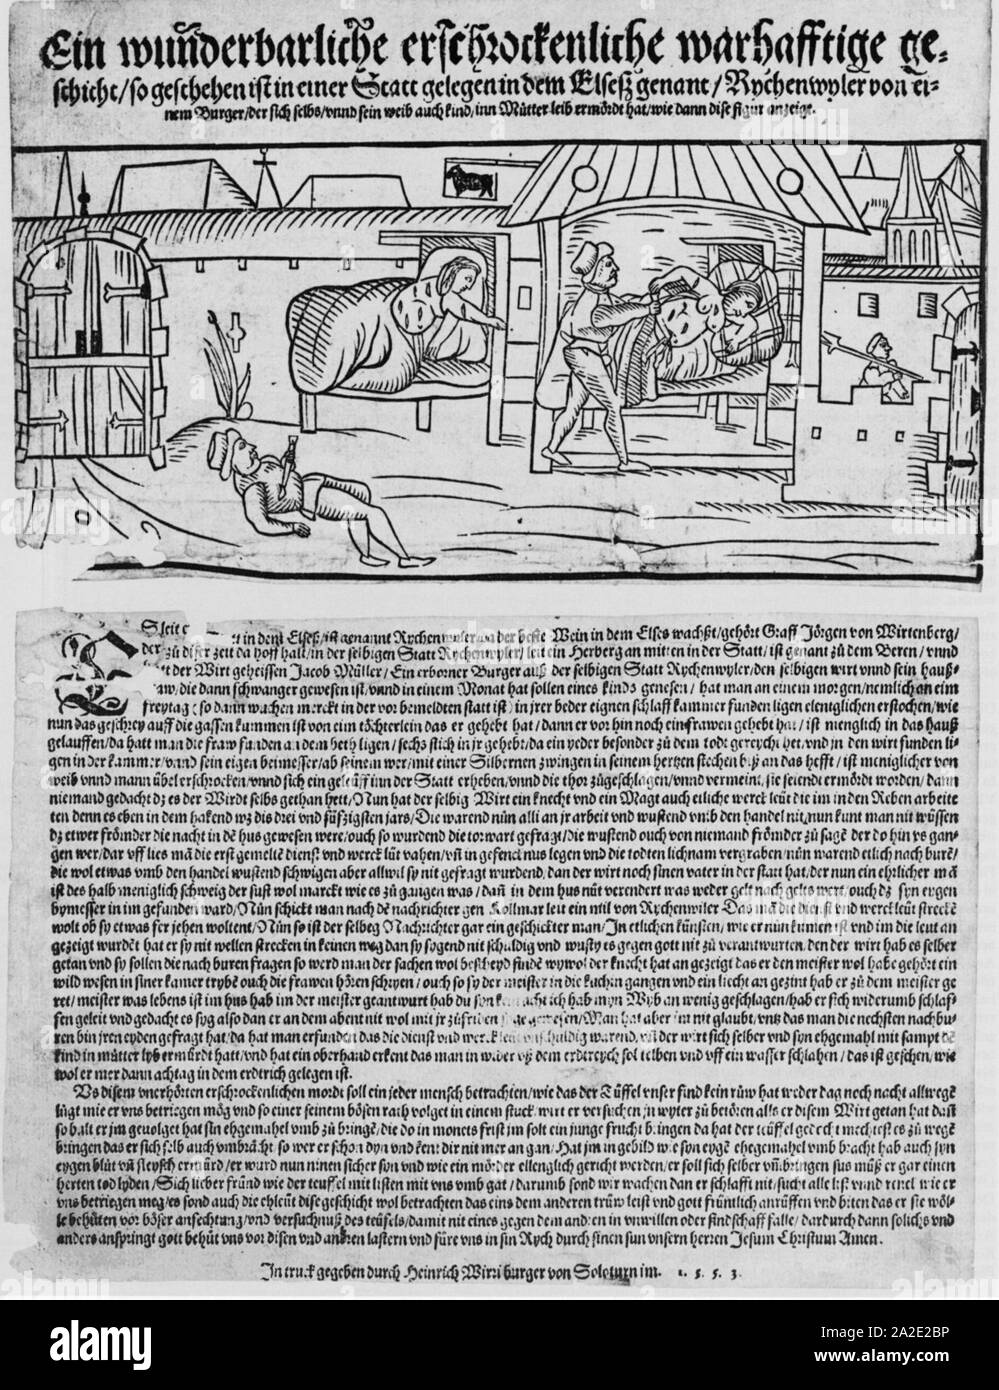 Ein wunderbarliche erschrockenliche warhafftige ge-
schicht / so geschehen ist in einer Statt gelegen in dem Elseß genant / Rychenwyler von ei-
nem Burger / der sich selbs / vnnd sein weib auch kind / inn Mütter leib ermördt hat / wie dann dise figur anzeigt.
in dem Elseß / ist genannt Rychenwyler da der beste Wein in dem Elses wachßt / gehört Graff Jörgen von Wirtenberg /
der zů diser zeit da hoff halt / in der selbigen Statt Rychenwyler / leit ein Herberg an mitten in der Statt / ist genant zů dem Beren / vnnd
der Wirt geheissen Jacob Müller / Ein erborner Burger auß der selbigen Statt Rychenwyler / den selbigen wirt vnnd sein hauß-
die dann schwanger gewesen ist / vnnd in einem Monat hat sollen eines kinds genesen / hat man an einem morgen / nemlich an eim
freytag (so dann wachen merckt in der vor bemeldten statt ist) in jrer beder eignen schlaff kammer funden ligen elenigklichen erstochen / wie
nun das geschrey auff die gassen kummen ist von eim töchterlein das er gehebt hat / dann er vor hin noch ein frawen gehebt hat / ist menglich in das hauß
gelauffen / da hatt man die fraw funden an dem beth ligen / sechs stich in jr gehebt / da ein yeder besonder zů dem todt gereycht het / vnd in den wirt funden li-
gen in der kammer / vnnd sein eigen beimesser / ab seinem wer / mit einer Silbernen zwingen in seinem hertzen stechen biß an das hefft / ist meniglicher von
weib vnnd mann übel erschrocken / vnnd sich ein geleüff inn der Statt erheben / vnnd die thor zůgeschlagen / vnnd vermeint / sie seiendt ermördt worden / dann
niemand gedacht dz es der Wirdt selbs gethan hett / Nun hat der selbig Wirt ein knecht vnd ein Magt auch etliche werck leüt die im in den Reben arbeite
ten denn es eben in dem hakend wz dis drei vnd füfzigsten jars / Die warend nün alli an jr arbeit vnd wustend vmb den handel nit / nun kunt man nit wüssen
dz etwer frömder die nacht in dē hus gewesen were / ouch so wurdend die torwart gefragt / die wustend ouch von niemand frömder zů sagē der do hin vs gan-
gen wer / dar vff lies mā die erst gemelte dienst vnd werck lüt vahen / vñ in gefencknus legen vnd die todten lichnam vergraben / nün warend etlich nach burē /
die wol etwas vmb den handel wustend schwigen aber allwil sy nit gefragt wurdend, dan der wirt noch sinen vater in der statt hat / der nun ein ehrlicher mā
ist des halb meniglich schweig der sust wol marckt wie es zů gangen was / dañ in dem hus nüt verendert was weder gelt nach gelts wert / ouch dz syn eygen
bymesser in im gefunden ward / Nün schickt man nach dē nachrichter gen Kollmar leit ein mil von Rychenwiler Das mā die dienst vnd werck leüt streckē
wolt ob sy etwas ser jehen woltent / Nün so ist der selbeg Nachrichter gar ein geschickter man / In etlichen künsten / wie er nün kumen ist vnd im die leut an
gezeigt wurdēt hat er sy nit wellen strecken in keinen weg dan sy sygend nit schuldig vnd wusty es gegen gott nit zů verantwurten, den der wirt hab es selber
getan vnd sy sollen die nach buren fragen so werd man der sachen wol bescheyd findē wywol der knecht hat an gezeigt das er den meister wol habe gehört ein
wild wesen in siner kamer trybē ouch die frawen hören schryen / ouch so sy der meister in die kuchen gangen vnd ein liecht an gezint hab er zů dem meister ge
ret / meister was lebens ist im hus hab im der meister geantwurt hab du hab myn Wyb an wenig geschlagen / hab er sich widerumb schlaf-
fen geleit vnd gedacht es syg also dan er an dem abent nit wol mit jr zůfriden syge gewesen / Man hat aber im nit glaubt / vntz das man die nechsten nachbu-
ren bin jren eyden gefragt hat / da hat man erfunden das die dienst vnd werck leut vnschuldig warend, vñ der wirt sich selber vnd syn ehgemahl mit sampt dē
kind in mütter lyb ermürdt hatt / vnd hat ein oberhand erkent das man in wider vß dem erdtreych sol telben vnd vff ein wasser schlahen / das ist geschen, wie
wol er mer dann achtag in dem erdtrich gelegen ist.
Vs disem vnerhörten erschrockenlichen mordt soll ein jeder mensch betrachten / wie das der Tüffel vnser find kein růw hat weder dag noch nacht allwegē
lügt wie er vns betriegen mög vnd so einer seinem bösen rath volget in einem stuck, wirt er versuchen jn wyter zů betören alls er disem Wirt getan hat dañ
so balt er jm geuolget hat sin ehgemahel vmb zů bringē, die do in monets frist jm solt ein junge frucht bringen da hat der teüffel gedecht mechtest es zů wegē
bringen das er sich selb auch vmbrächt so wer er schon dyn vnd kem dir nit mer an gan / Hat jm in gebild wie syn eygē ehegemahel vmb bracht hab auch syn
eygen blüt vñ fleysch ermürd / er wurd nun ninen sicher syn vnd wie ein mörder ellenglich gericht werden / er soll sich selber vmbringen sus müß er gar einen
herten tod lyden / Sich lieber fründ wie der teuffel mit listen mit vns vmb gat / darumb sond wir wachen dan er schlafft nit / sucht alle list vnnd renck wie er
vns betriegen meg / es sond auch die ehleüt dise geschicht wol betrachten das eins dem anderen trüw leist vnd gott früntlich anrüffen vnd biten das er sie wöl-
le behüten vor böser anfechtung / vnd versuchnuß des teüfels / damit nit eines gegen dem andren in vnwillen oder findschaff falle / dardurch dann solichs vnd
anders anspringt gott behüt vns vor disen vnd andren lastern vnd füre vns in sin Rych durch sinen sun vnsern herren Jesum Christum Amen.
In truck gegeben durch Heinrich Wirri burger von Soloturn im. 1. 5. 5. 3.
alamy
Image ID: 2A2E2BP
www.alamy.com